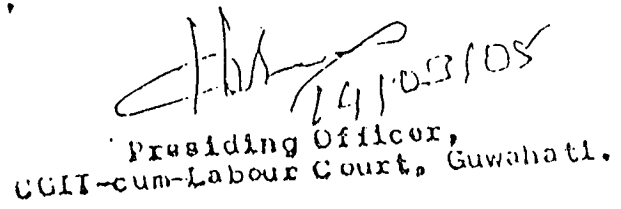 14/03/05
Presiding Officer,
CGIT-cum-Labour Court, Guwahati.